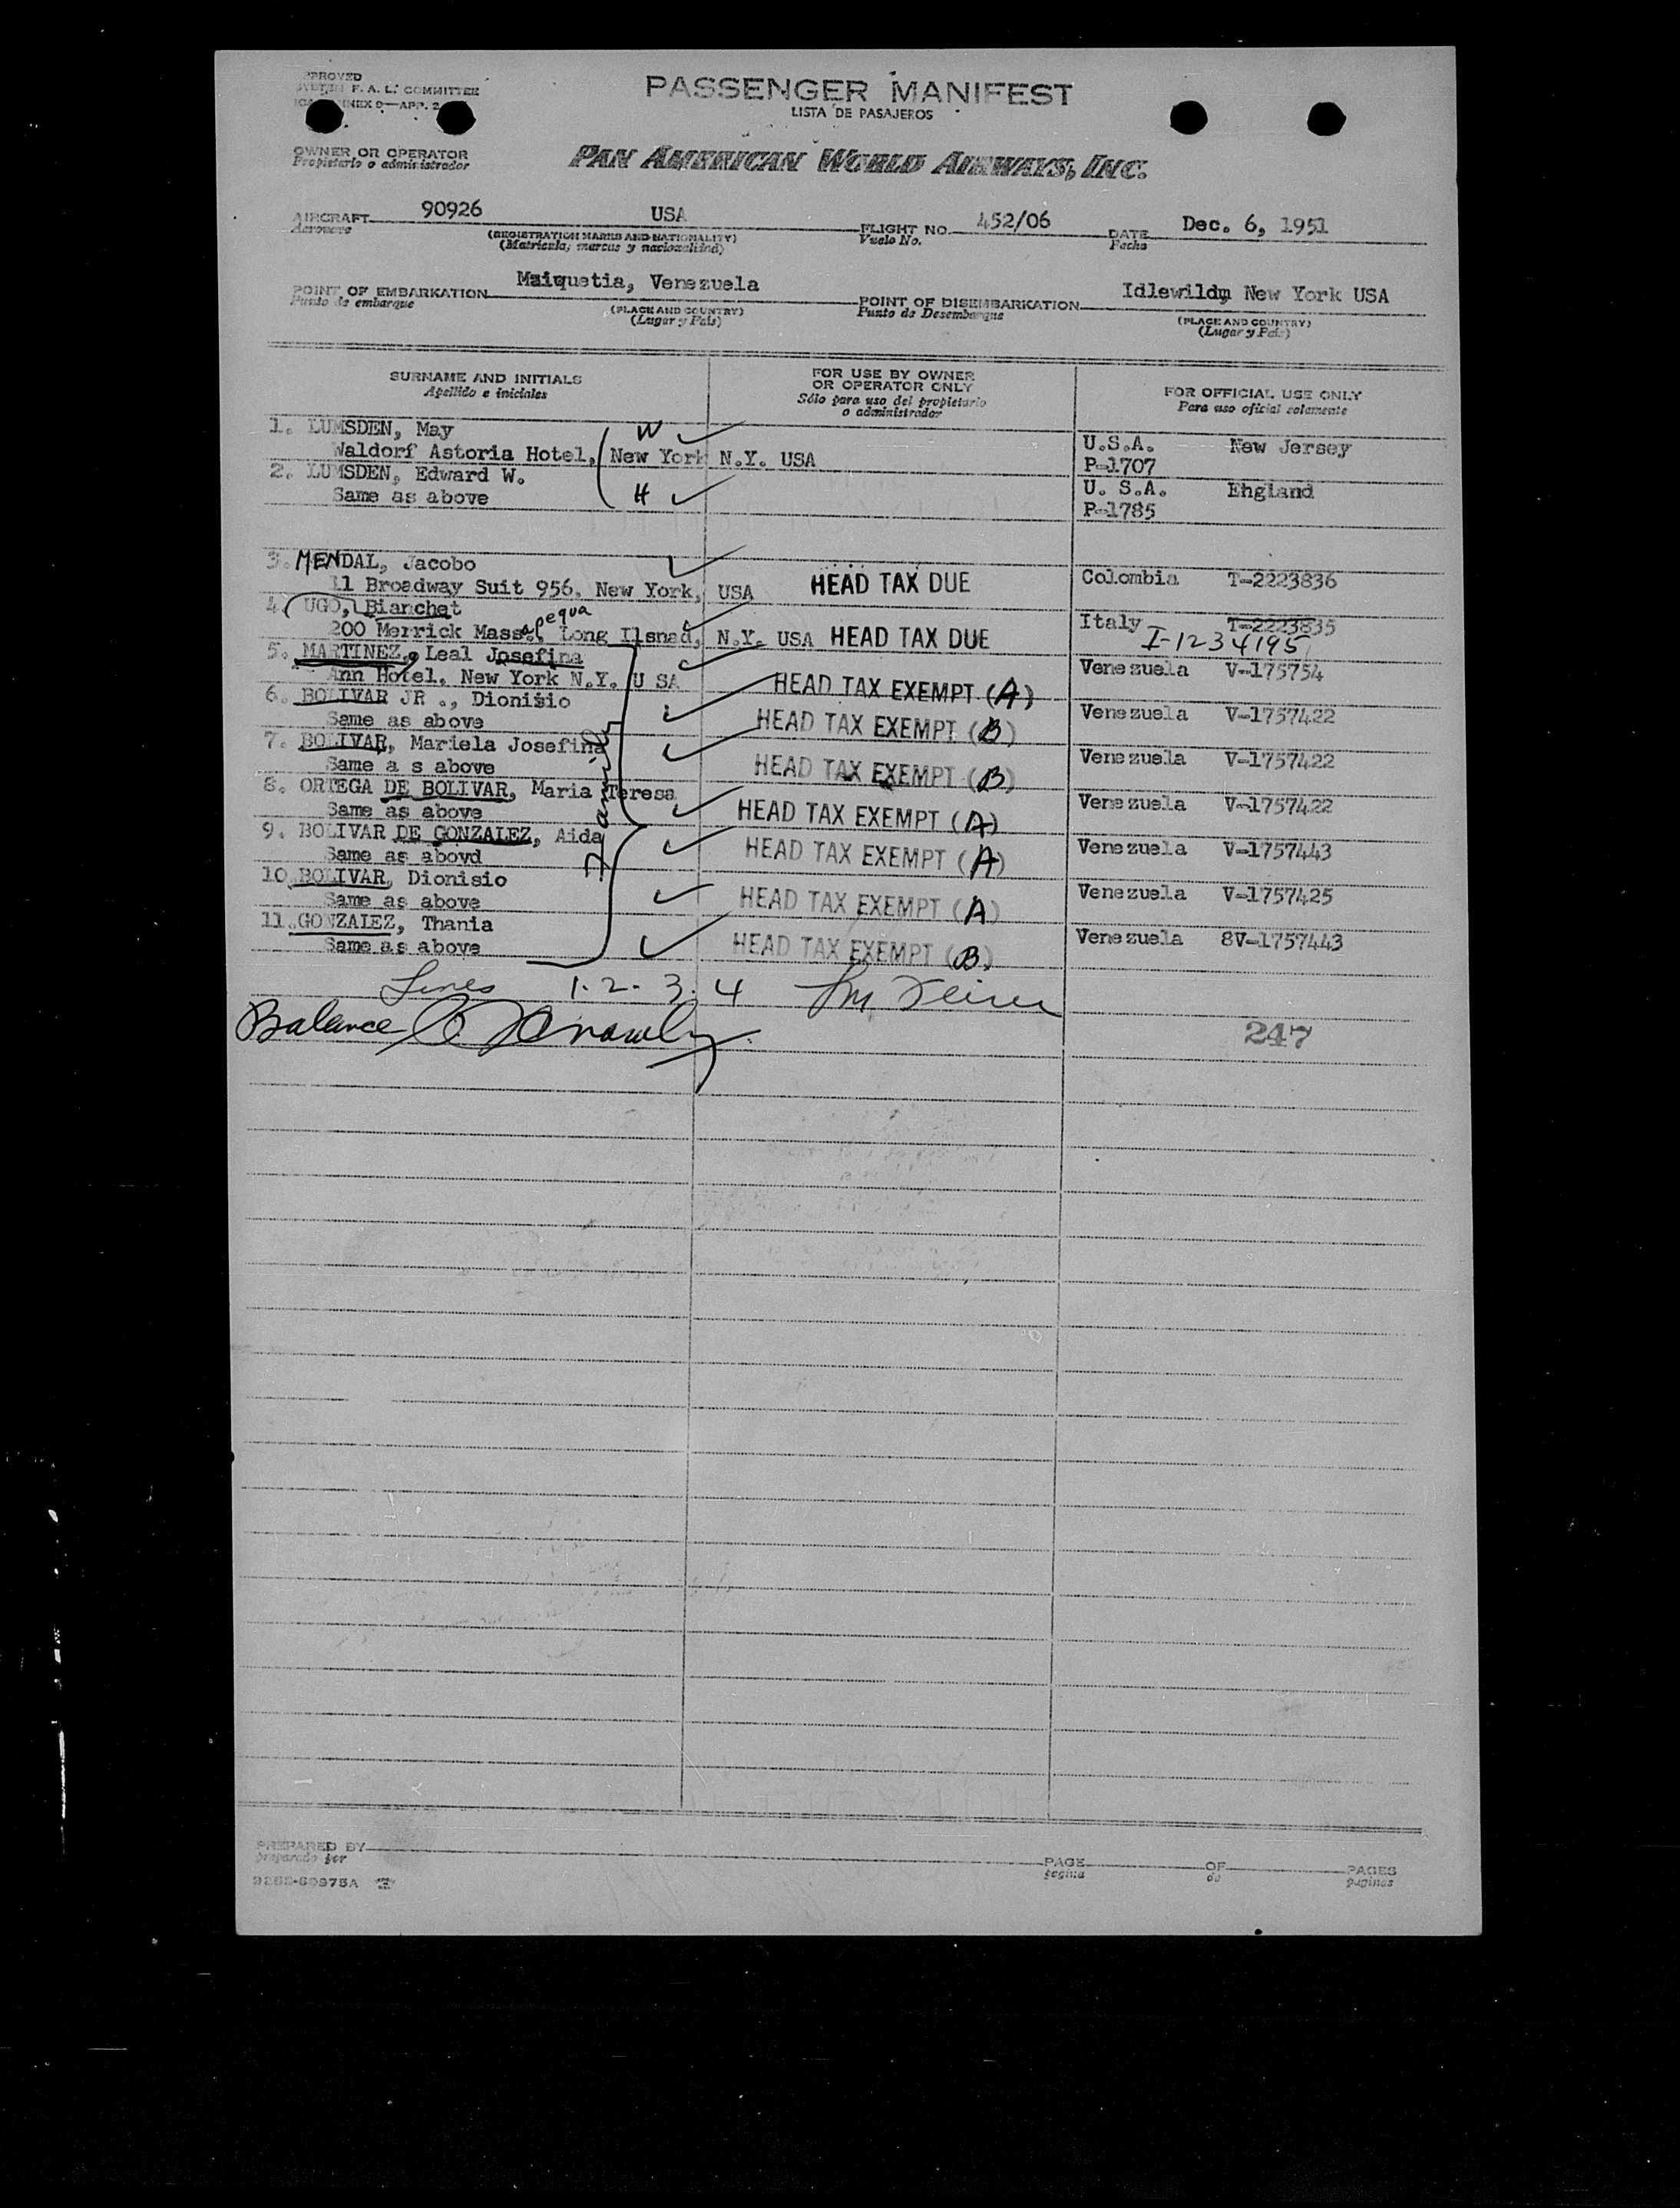 PROVED
F. A. L. COMMITTEE
NNEX 9—APP. 2
PASSENGER MANIFEST
LISTA DE PASAJEROS
OWNER OR OPERATOR
Propietario o administrador
PAN AMERICAN WORLD AIRWAYS, INC.
AIRCRAFT 90926 USA FLIGHT NO. 452/06 DATE Dec. 6, 1951
Aeronave (REGISTRATION MARKS AND NATIONALITY) Vuelo No. Fecha
(Matricula, marcas y nacionalidad)
POINT OF EMBARKATION Maiquetia, Venezuela POINT OF DISEMBARKATION Idlewild, New York USA
Punto de embarque (PLACE AND COUNTRY) Punto de Desembarque (PLACE AND COUNTRY)
(Lugar y País) (Lugar y País)
SURNAME AND INITIALS FOR USE BY OWNER OR OPERATOR ONLY FOR OFFICIAL USE ONLY
Apellido e iniciales Sólo para uso del propietario o administrador Para uso oficial solamente
1. LUMSDEN, May W U.S.A. New Jersey
Waldorf Astoria Hotel, New York N.Y. USA P-1707
2. LUMSDEN, Edward W. U. S.A. Ehgland
Same as above H P-1785
3. MENDAL, Jacobo
11 Broadway Suit 956, New York, USA HEAD TAX DUE Colombia T-2223836
4. (UGO, Bianchet
200 Merrick Massapequa, Long Ilsnad, N.Y. USA HEAD TAX DUE Italy T-2223835
I-1234195
5. MARTINEZ, Leal Josefina
Ann Hotel, New York N.Y. U SA HEAD TAX EXEMPT (A) Venezuela V-175754
6. BOLIVAR JR ., Dionisio
Same as above HEAD TAX EXEMPT (B) Venezuela V-1757422
7. BOLIVAR, Mariela Josefina
Same a s above HEAD TAX EXEMPT (B) Venezuela V-1757422
8. ORTEGA DE BOLIVAR, Maria Teresa
Same as above HEAD TAX EXEMPT (A) Venezuela V-1757422
9. BOLIVAR DE GONZALEZ, Aida
Same as aboyd HEAD TAX EXEMPT (A) Venezuela V-1757443
10. BOLIVAR, Dionisio
Same as above HEAD TAX EXEMPT (A) Venezuela V-1757425
11. GONZALEZ, Thania
Same as above HEAD TAX EXEMPT (B) Venezuela 8V-1757443
Lines 1. 2. 3. 4
Balance
247
PREPARED BY PAGE OF PAGES
preparado por pagina de paginas